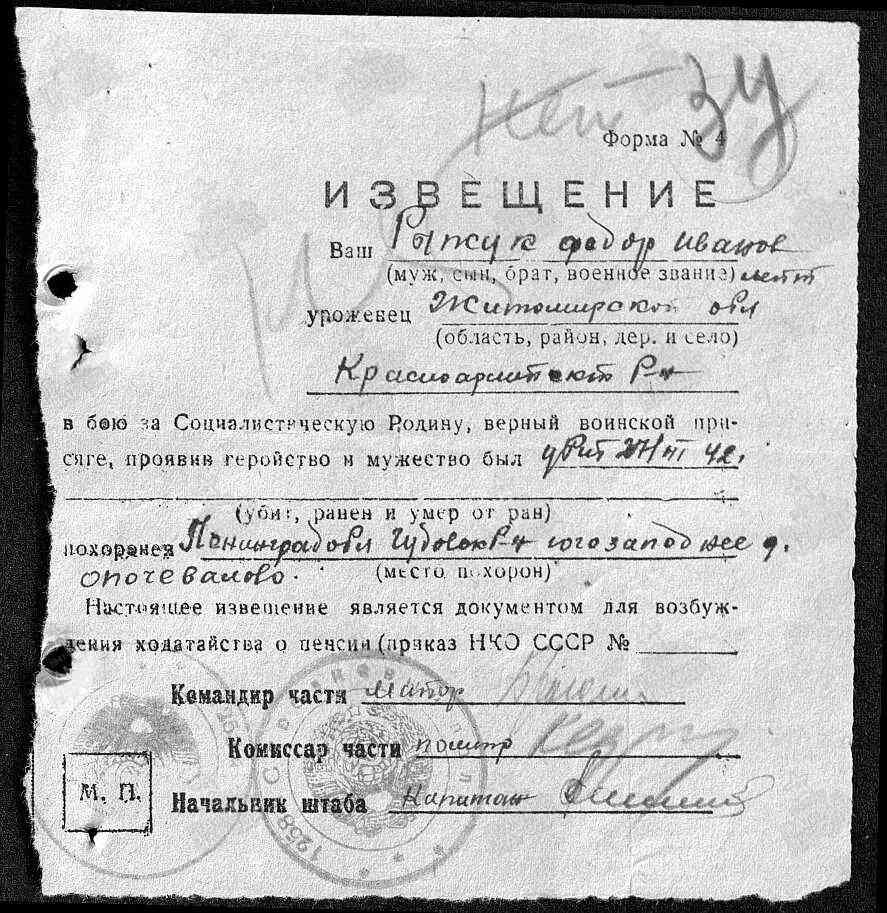 нет ЗУ
Форма № 4
ИЗВЕЩЕНИЕ
Ваш Рыжук федор Иванов
(муж, сын, брат, военное звание) лейт
уроженец Житомирской обл
(область, район, дер. и село)
Красноармейского Р-н
в бою за Социалистическую Родину, верный воинской при-
сяге, проявив геройство и мужество был убит 42.
(убит, ранен и умер от ран)
похоронен Ленинград обл Чудовск Р-н югозападнее д.
опочевалово.
(место похорон)
Настоящее извещение является документом для возбуж-
дения ходатайства о пенсии (приказ НКО СССР №
Командир части майор
Комиссар части
М. П.
Начальник штаба Капитан
1258